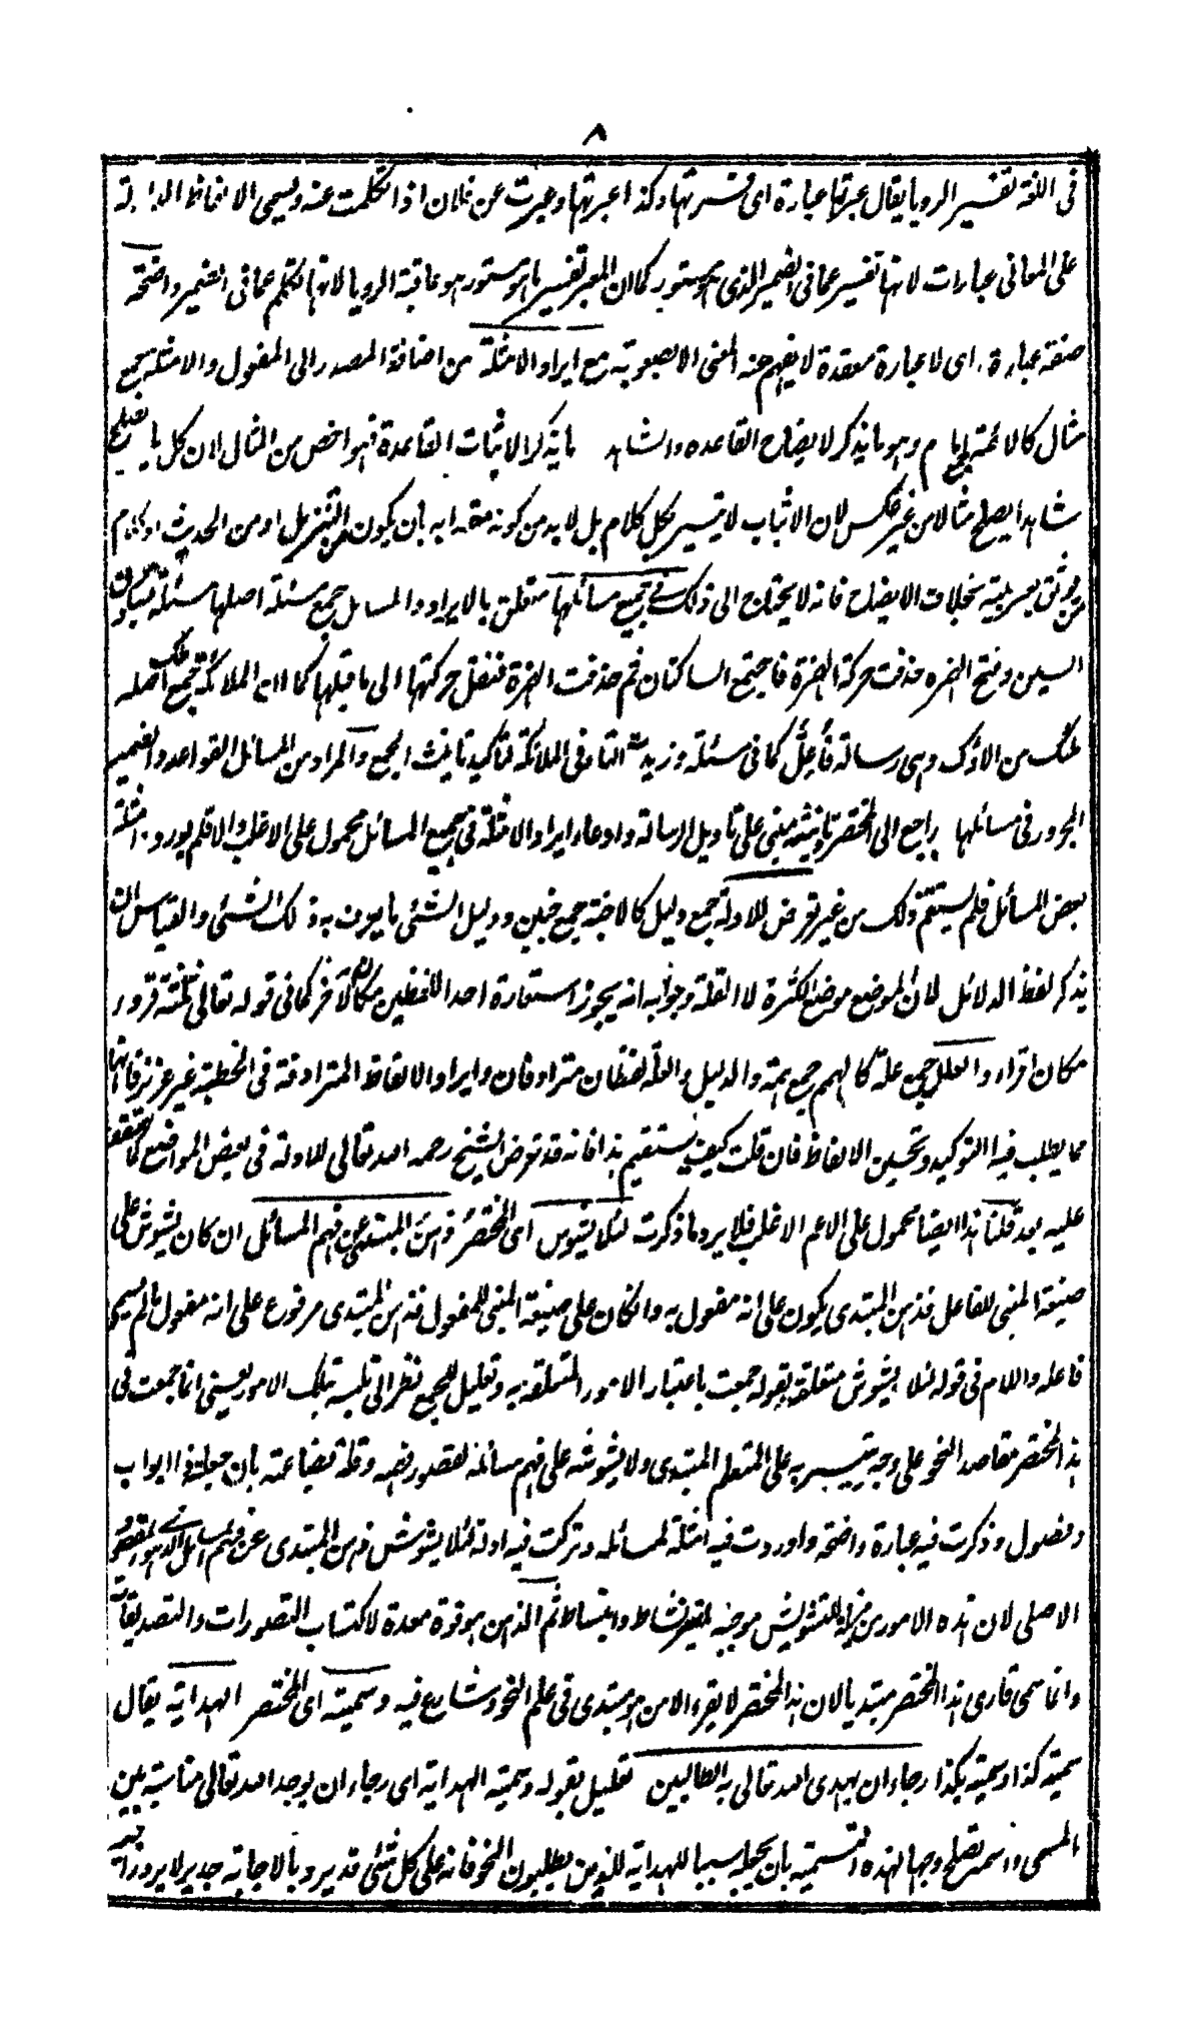 ٨
فى اللغة تفسير الرويا يقال عبرتها عبارة اى فسرتها وكذا عبرتها وعبرت عن فلان اذا تكلمت عنه ويسمى الالفاظ الدالة
على المعانى عبارات لانها تفسير عما فى الضمير الذى هو مستور كما ان المعبر تفسير ما هو مستور هو عاقبة الرويا لانها تكلم عما فى الضمير واضحة
صفة عبارة اى لا عبارة معقدة لا يفهم عنه المعنى الا بصعوبة مع ايراد الامثلة من اضافة المصدر الى المفعول والامثلة جمع
مثال كالائمة لجمع امام وهو ما يذكر لايضاح القاعده والشاهد ما يذكر لاثبات القاعدة فهو اخص من المثال لان كل ما يصلح
شاهدا يصلح مثالا من غير عكس لان الاثبات لا يتيسر بكل كلام بل لا بد من كونه معتدا به بان يكون من التنزيل او من الحديث او كلام
من يوثق بعربيته بخلاف الايضاح فانه لا يحتاج الى ذلك فى جميع مسائلها متعلق بالايراد والمسايل جمع مسئلة اصلها مسئلة بسكون
السين وفتح الهمزه حذفت حركة الهمزة فاجتمع الساكنان ثم حذفت الهمزة فنقل حركتها الى ما قبلها كما ان الملائكة جمع ملك اصله
ملأك من الالوك وهى رسالة فأعل كما فى سئلة وزيدت التاء فى الملائكة لتاكيد تانيث الجمع والمراد من المسائل القواعد والضمير
المجرور فى مسائلها راجع الى المختصر تانيثه مبنى على تاويل الرسالة وادعاء ايراد الامثلة فى جميع المسائل محمول على الاغلب والا فلم يورد امثلة
بعض المسائل فلم يستقم ذلك من غير تعرض للادلة جمع دليل كالاجنة جمع جنين ودليل الشئى ما يعرف به ذلك الشئى والقياس ان
يذكر لفظ الدلائل لان الموضع موضع الكثرة لا القلة وجوابه انه يجوز استعارة احد اللفظين مكان الآخر كما فى قوله تعالى ثلثة قرور
مكان اقراء والعلل جمع علة كالهمم جمع همة والدليل والعلة لفظان مترادفان وايراد الالفاظ المترادفة فى الخطبة غير عزيز فانها
مما يطلب فيه التوكيد وتحسين الالفاظ فان قلت كيف يستقيم هذا فانه قد تعرض الشيخ رحمه الله تعالى للادلة فى بعض المواضع كما ستقف
عليه بعد قلنا هذا ايضا محمول على الاعم الاغلب فلا يرد ما ذكرت لئلا يشوش اى المختصر ذهن المبتدى عن فهم المسائل ان كان يشوش على
صيغة المبنى للفاعل فذهن المبتدى يكون على انه مفعول به وان كان على صيغة المبنى للمفعول فذهن المبتدى مرفوع على انه مفعول ما لم يسم
فاعله واللام فى قوله لئلا يشوش متعلقة بقوله جمعت باعتبار الامور المتعلقة به وتعليل للجمع نظرا الى تلبسه بتلك الامور يعنى انما جمعت فى
هذا المختصر مقاصد النحو على وجه يتيسر به على المتعلم المبتدى ولا يشوشه على فهم مسائله لقصور فهمه وقلة بضاعته بان جعلته ذا ابواب
وفصول وذكرت فيه عبارة واضحة واوردت فيه امثلة لمسائله وتركت فيه ادلة لئلا يشوش ذهن المبتدى عن فهم المسائل الذى هو المقصود
الاصلى لان هذه الامور مزيلة للتشويش موجبة لتغير نشاط وانبساط ثم الذهن هو قوة معدة لاكتساب التصورات والتصديقات
وانما سمى قارى هذا المختصر مبتديا لان هذا المختصر لا يقرء الا من هو مبتدى فى علم النحو وشارع فيه وسميته اى المختصر الهداية يقال
سميته كذا وسميته بكذا رجاء ان يهدى الله تعالى به الطالبين تعليل بقوله وسميته الهداية اى رجاء ان يوجد الله تعالى مناسبة بين
المسمى والاسم تصلح وجها لهذه التسمية بان يجعله سببا للهداية للذين يطلبون النحو فانه على كل شئى قدير وبالاجابة جدير لا يرد